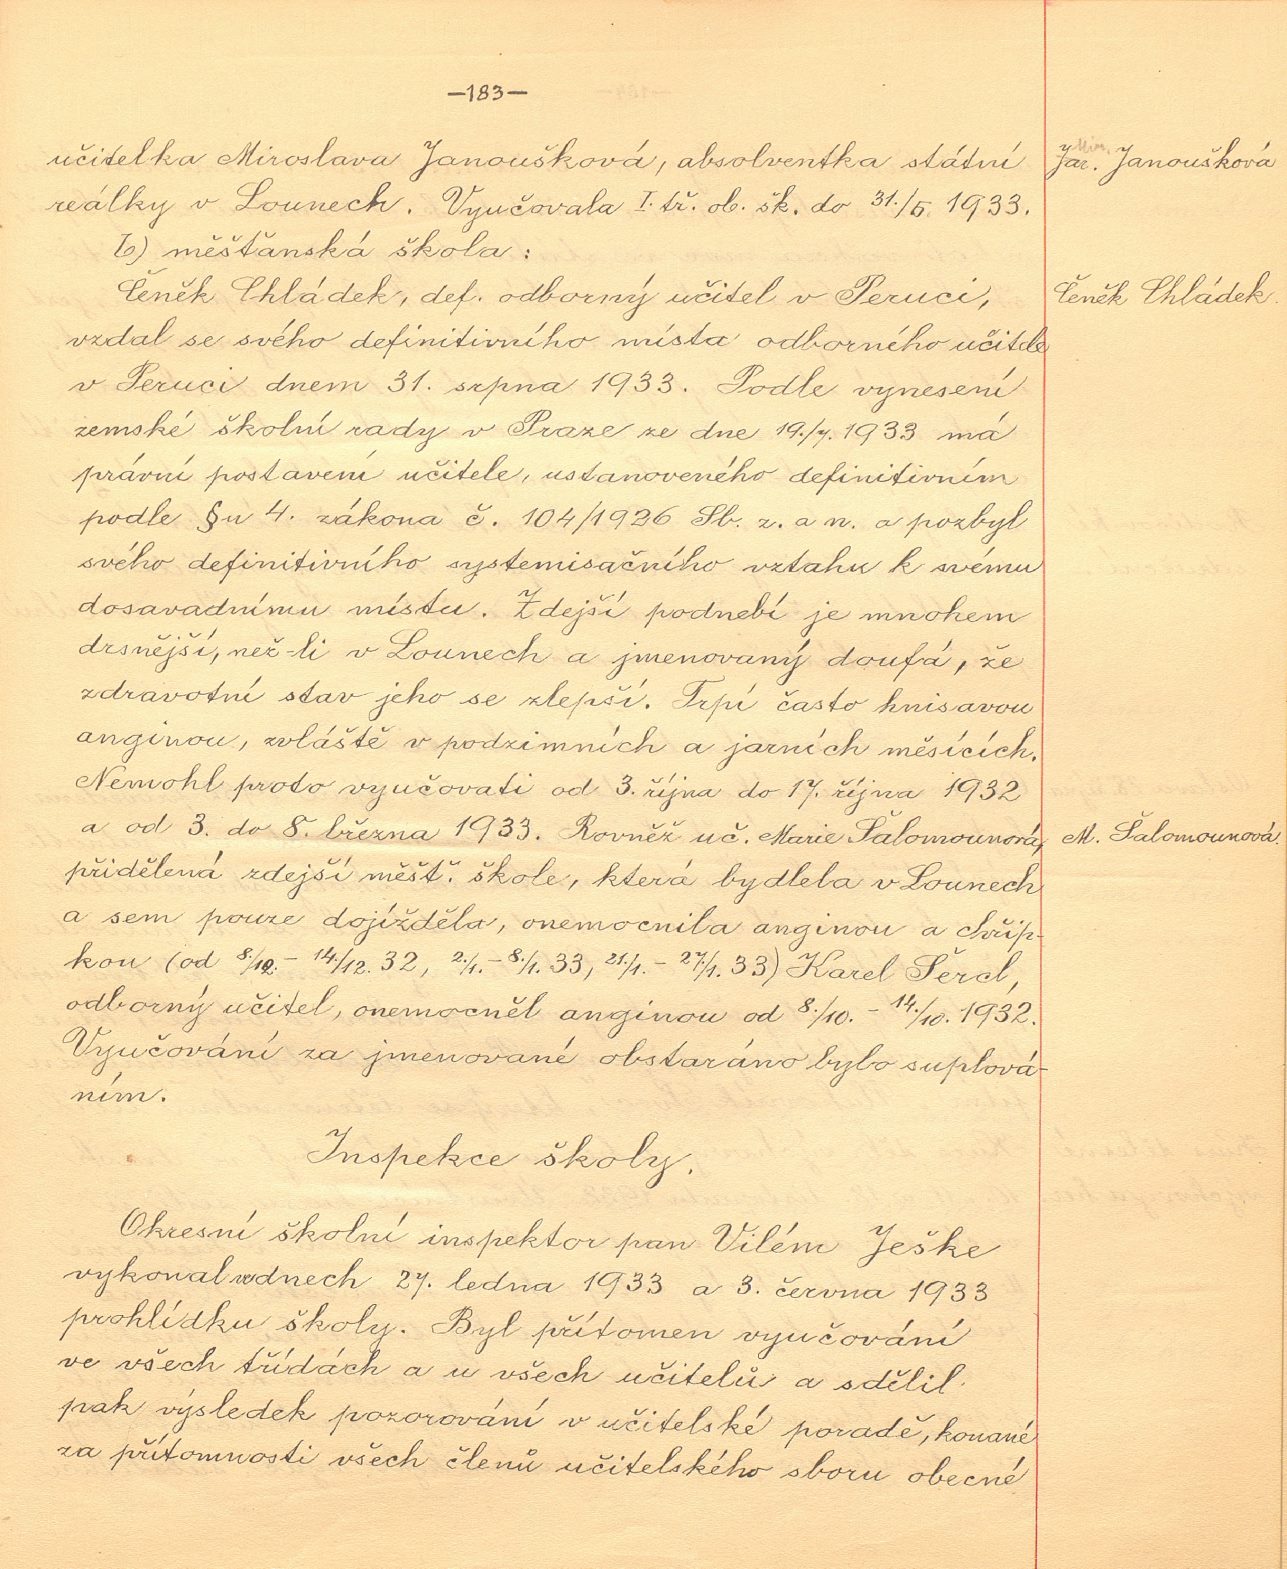 —183—
učitelka Miroslava Janoušková, absolventka státní
Jar. Janoušková
reálky v Lounech. Vyučovala I. tř. ob. šk. do 31./5. 1933.
b) měšťanská škola:
Čeněk Chládek, def. odborný učitel v Peruci,
Čeněk Chládek.
vzdal se svého definitivního místa odborného učitele
v Peruci dnem 31. srpna 1933. Podle vynesení
zemské školní rady v Praze ze dne 19./7. 1933 má
právní postavení učitele, ustanoveného definitivním
podle §u 4. zákona č. 104/1926 Sb. z. a n. a pozbyl
svého definitivního systemisačního vztahu k svému
dosavadnímu místu. Zdejší podnebí je mnohem
drsnější, než-li v Lounech a jmenovaný doufá, že
zdravotní stav jeho se zlepší. Trpí často hnisavou
anginou, zvláště v podzimních a jarních měsících.
Nemohl proto vyučovati od 3. října do 17. října 1932
a od 3. do 8. března 1933. Rovněž uč. Marie Šalomounová,
M. Šalomounová.
přidělená zdejší měšť. škole, která bydlela v Lounech
a sem pouze dojížděla, onemocnila anginou a chřip-
kou (od 8./12. – 14./12. 32, 2./1. – 8./1. 33, 21./1. – 27./1. 33) Karel Šercl,
odborný učitel, onemocněl anginou od 8./10. – 14./10. 1932.
Vyučování za jmenované obstaráno bylo suplová-
ním.
Inspekce školy.
Okresní školní inspektor pan Vilém Ješke
vykonal ve dnech 27. ledna 1933 a 3. června 1933
prohlídku školy. Byl přítomen vyučování
ve všech třídách a u všech učitelů a sdělil
pak výsledek pozorování v učitelské poradě, konané
za přítomnosti všech členů učitelského sboru obecné